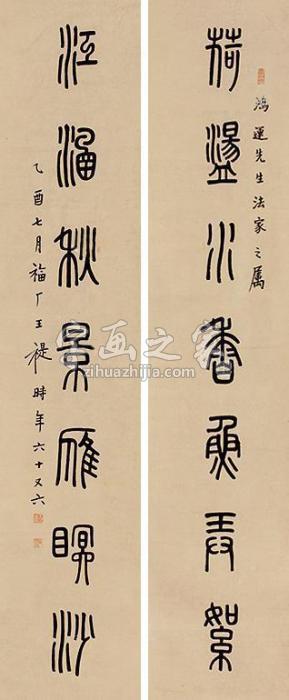 鴻運先生法家之屬
荷盪水香魚弄絮
江涵秋景雁瞑沙
乙酉七月福厂王禔時年六十又六
书画之家
zihuazhijia.com